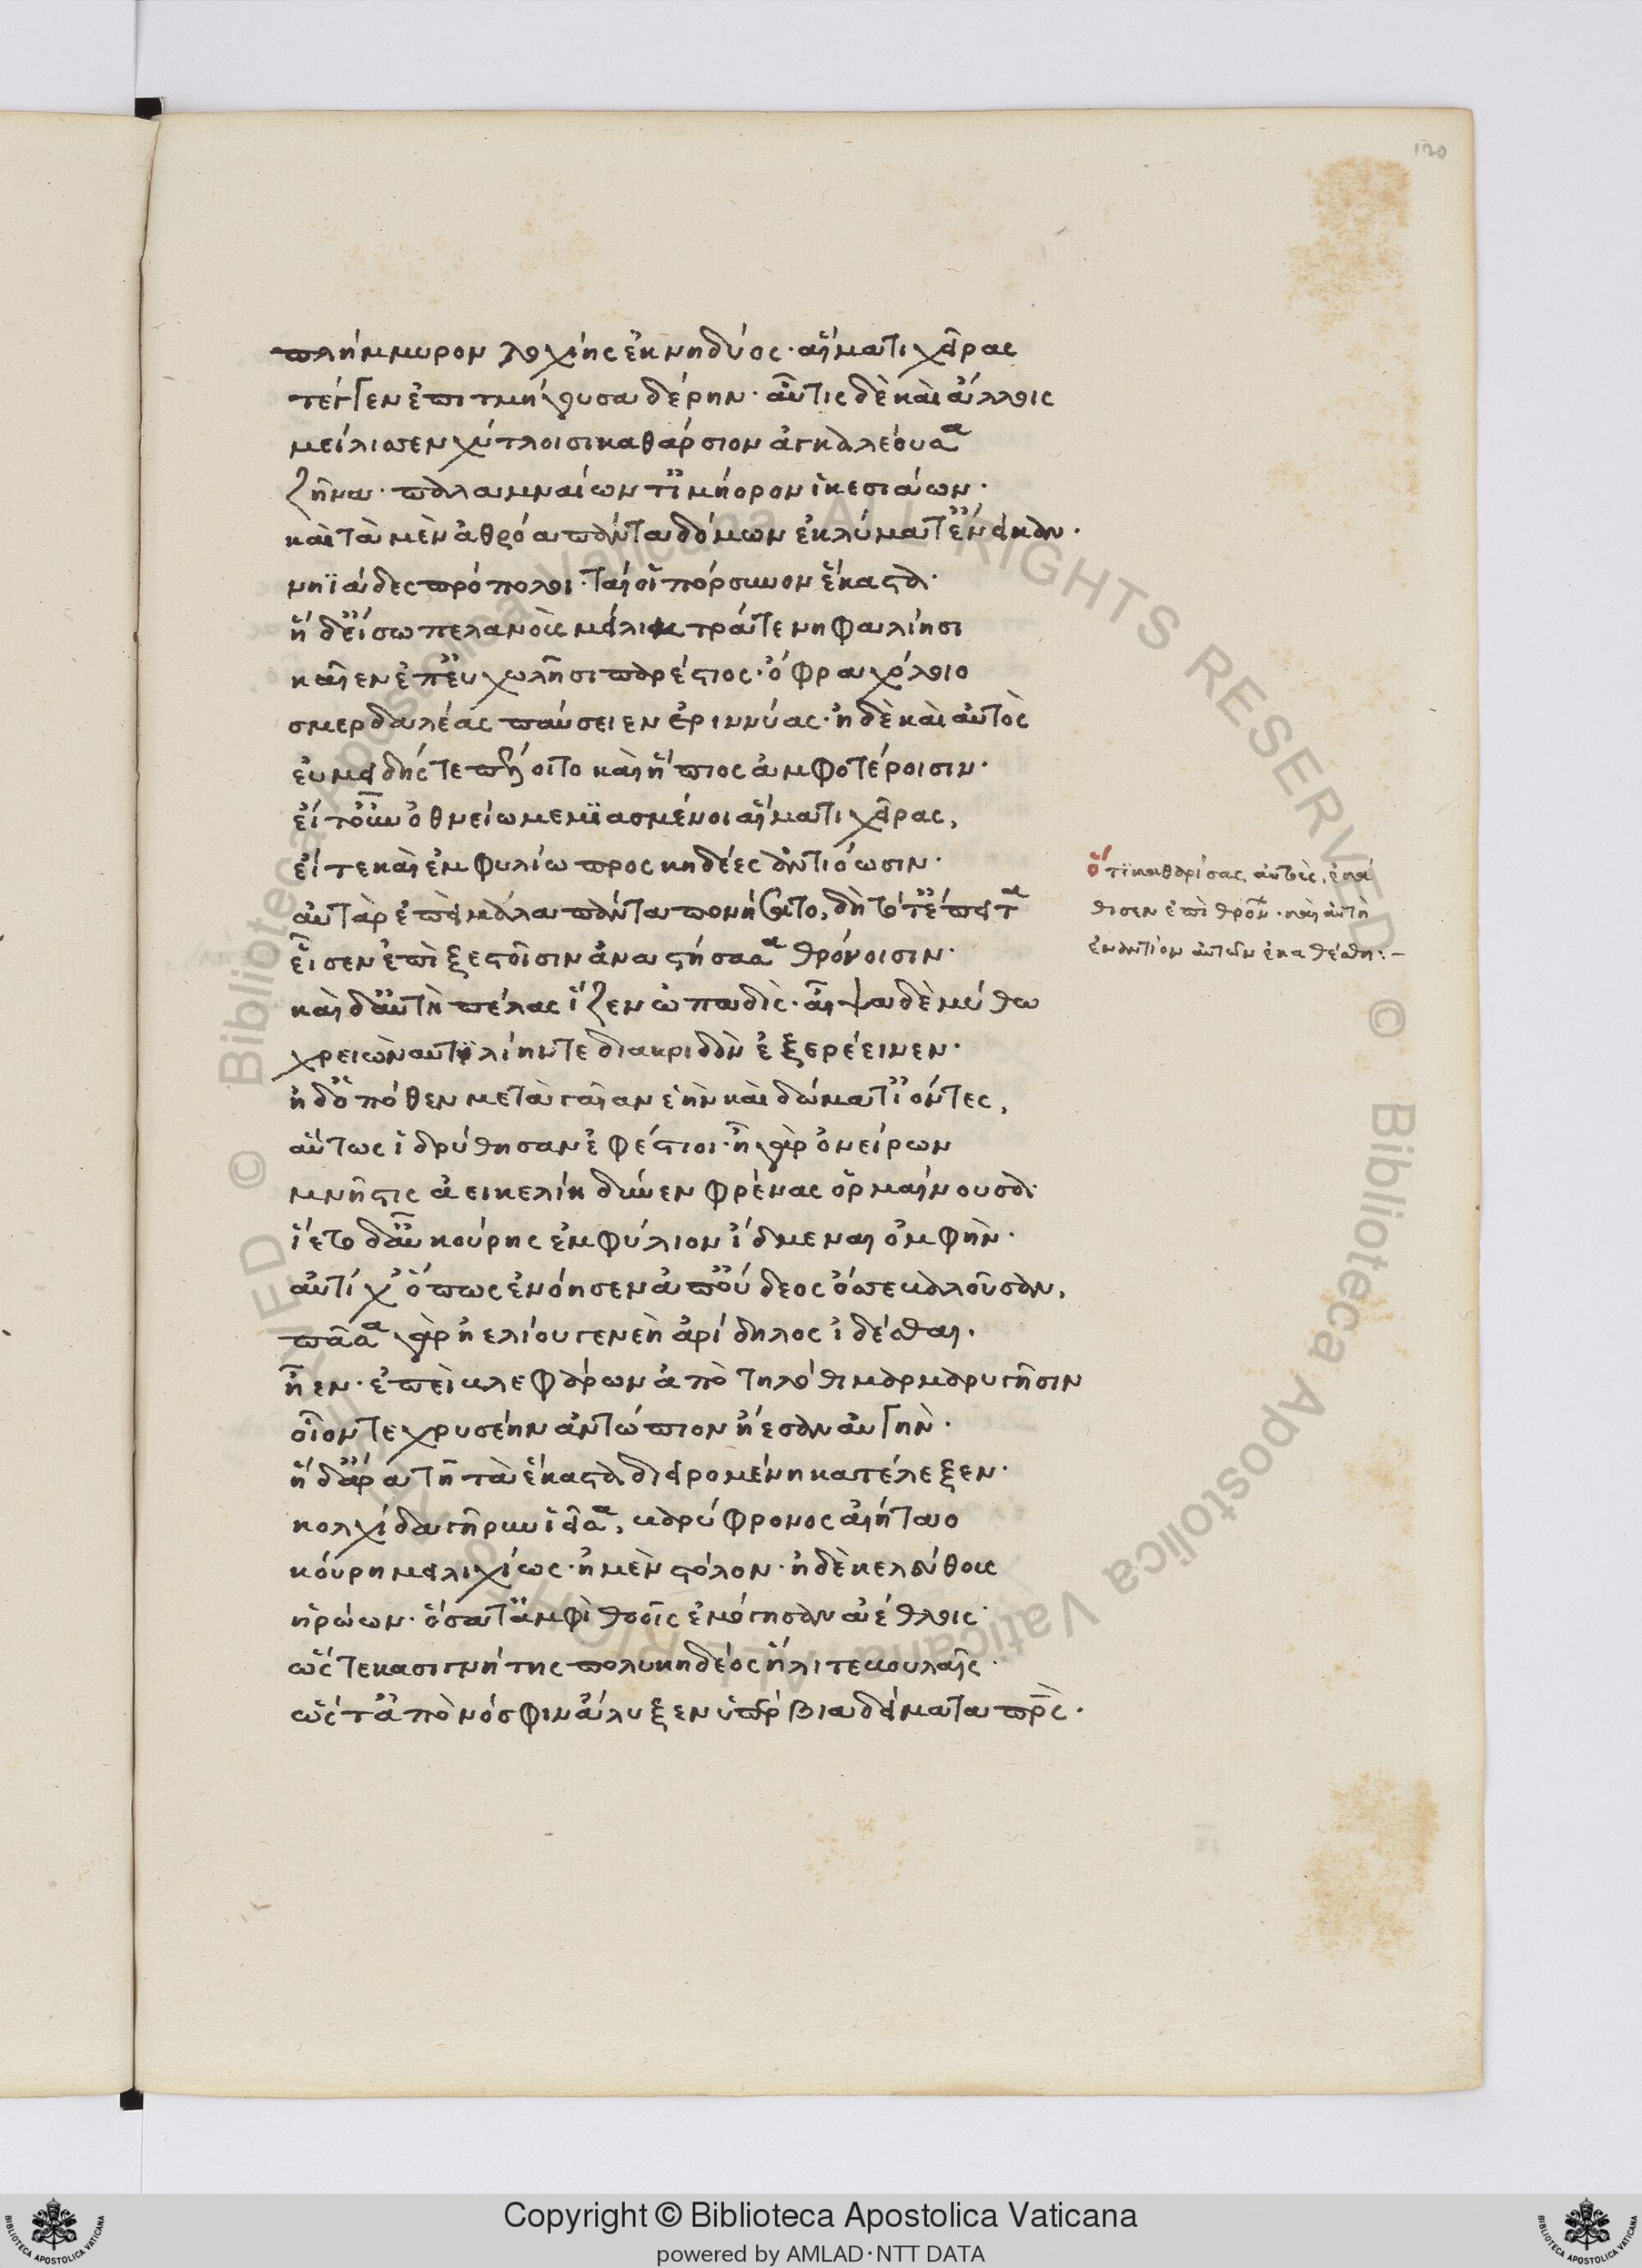 130
πλήμμυρον λοχίης ἐκ νηδύος· αἵματι χεῖρας
τέγγεν ἐπιτμήγουσα δέρην· αὖτις δὲ καὶ ἄλλοις
μείλισσεν χύτλοισι καθάρσιον ἀγκαλέουσα
ζῆνα· παλαμναίων τιμήορον ἱκεσιάων·
καὶ τὰ μὲν ἀθρόα πάντα δόμων ἐκ λύματ' ἔνεικαν·
νηϊάδες πρόπολοι· ταί οἱ πόρσυνον ἕκαστα·
ἡ δ' εἴσω πελανοὺς μείλικτρά τε νηφαλίησι
καῖεν ἐπ' εὐχωλῇσι παρέστιος· ὄφρα χόλοιο
σμερδαλέας παύσειεν ἐριννύας· ἠδὲ καὶ αὐτὸς
εὐμειδής τε πέλοιτο καὶ ἤπιος ἀμφοτέροισιν·
εἴ τ' οὖν ὀθνείω μεμιασμένοι αἵματι χεῖρας,
εἴ τε καὶ ἐμφυλίω προσκηδέες ἀντιόωσιν·
αὐτὰρ ἐπεὶ μάλα πάντα πονήσατο, δὴ τότ' ἔπειτα
εἷσεν ἐπὶ ξεστοῖσιν ἀναστήσασα θρόνοισιν·
καὶ δ' αὐτὴ πέλας ἵζεν ἐνωπαδίς· αἶψα δὲ μύθω
χρειὼ ναυτιλίην τε διακριδὸν ἐξερέεινεν·
ἠδ' ὁπόθεν μετὰ γαῖαν ἑὴν καὶ δώματ' ἰόντες,
αὔτως ἱδρύθησαν ἐφέστιοι· ἦ γὰρ ὀνείρων
μνῆστις ἀεικελίη δῦνεν φρένας ὁρμαίνουσαν·
ἵετο δ' αὖ κούρης ἐμφύλιον ἴδμεναι ὀμφὴν·
αὐτίχ' ὅπως ἐνόησεν ἀπ' οὔδεος ὄσσε βαλοῦσαν,
πᾶσα γὰρ ἠελίου γενεὴ ἀρίδηλος ἰδέσθαι·
ἦεν· ἐπεὶ βλεφάρων ἀποτηλόθι μαρμαρυγῇσιν
οἷόν τε χρυσέην ἀντώπιον ἵεσαν αὐγὴν·
ἡ δ' ἄρα τῇ τὰ ἕκαστα διειρομένη κατέλεξεν·
κολχίδα γῆρυν ἱεῖσα, βαρύφρονος αἰήταο
κούρη μειλιχίως· ἠμὲν στόλον· ἠδὲ κελεύθους
ἡρώων· ὅσα τ' ἀμφὶ θοοῖς ἐμόγησαν ἀέθλοις·
ὥς τε κασιγνήτης πολυκηδέος ἤλιτε βουλαῖς·
ὥς τ' ἀπονόσφιν ἄλυξεν ὑπέρβια δείματα πατρὸς·
ὅτι καθαρίσας αὐτοὺς, ἐκά
θισεν ἐπὶ θρόνον· καὶ αὐτὴ
ἐναντίον αὐτῶν ἐκαθέσθη:–
Copyright © Biblioteca Apostolica Vaticana
powered by AMLAD·NTT DATA